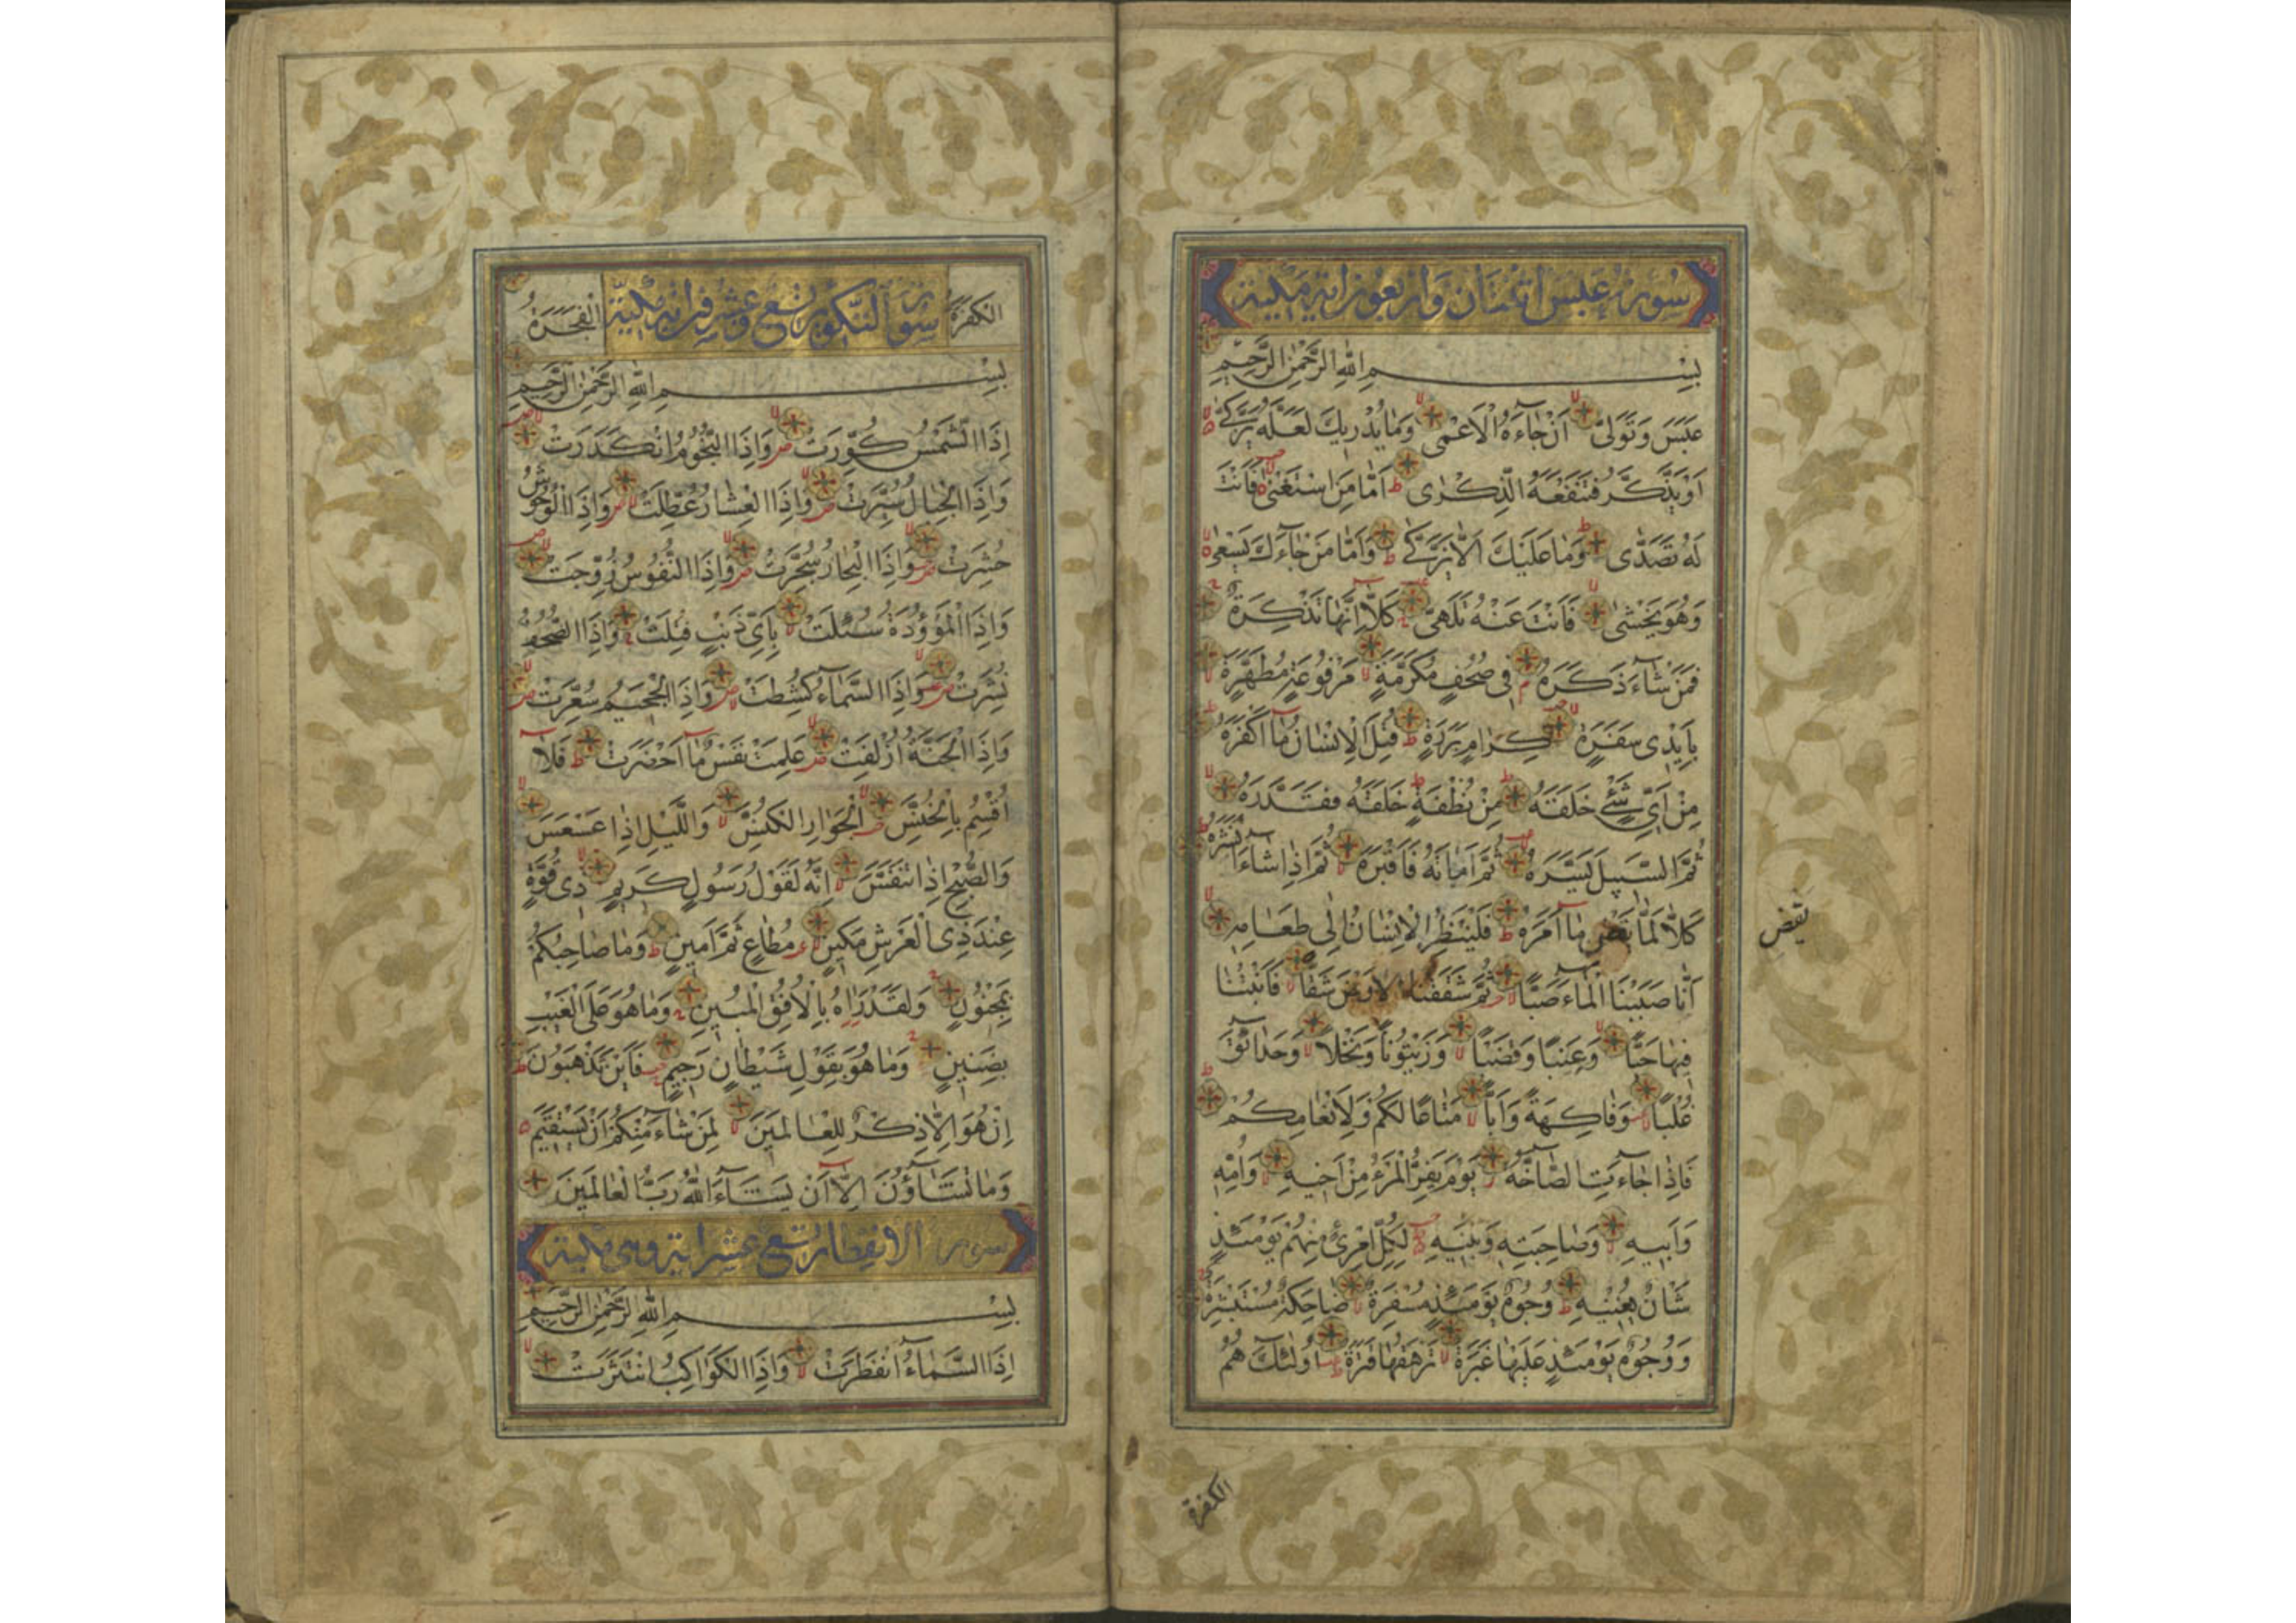 سورة عبس اثنتان واربعون اية مكية
بِسْمِ اللّٰهِ الرَّحْمٰنِ الرَّحِيمِ
عَبَسَ وَتَوَلّٰى اَنْ جَاءَهُ الْاَعْمٰى وَمَا يُدْرِيكَ لَعَلَّهُ يَزَّكّٰى
اَوْ يَذَّكَّرُ فَتَنْفَعَهُ الذِّكْرٰى اَمَّا مَنِ اسْتَغْنٰى فَاَنْتَ
لَهُ تَصَدّٰى وَمَا عَلَيْكَ اَلَّا يَزَّكّٰى وَاَمَّا مَنْ جَاءَكَ يَسْعٰى
وَهُوَ يَخْشٰى فَاَنْتَ عَنْهُ تَلَهّٰى كَلَّا اِنَّهَا تَذْكِرَةٌ
فَمَنْ شَاءَ ذَكَرَهُ فِى صُحُفٍ مُكَرَّمَةٍ مَرْفُوعَةٍ مُطَهَّرَةٍ
بِاَيْدِى سَفَرَةٍ كِرَامٍ بَرَرَةٍ قُتِلَ الْاِنْسَانُ مَا اَكْفَرَهُ
مِنْ اَىِّ شَىْءٍ خَلَقَهُ مِنْ نُطْفَةٍ خَلَقَهُ فَقَدَّرَهُ
ثُمَّ السَّبِيلَ يَسَّرَهُ ثُمَّ اَمَاتَهُ فَاَقْبَرَهُ ثُمَّ اِذَا شَاءَ اَنْشَرَهُ
كَلَّا لَمَّا يَقْضِ مَا اَمَرَهُ فَلْيَنْظُرِ الْاِنْسَانُ اِلٰى طَعَامِهِ
يقض
اَنَّا صَبَبْنَا الْمَاءَ صَبًّا ثُمَّ شَقَقْنَا الْاَرْضَ شَقًّا فَاَنْبَتْنَا
فِيهَا حَبًّا وَعِنَبًا وَقَضْبًا وَزَيْتُونًا وَنَخْلًا وَحَدَائِقَ
غُلْبًا وَفَاكِهَةً وَاَبًّا مَتَاعًا لَكُمْ وَلِاَنْعَامِكُمْ
فَاِذَا جَاءَتِ الصَّاخَّةُ يَوْمَ يَفِرُّ الْمَرْءُ مِنْ اَخِيهِ وَاُمِّهِ
وَاَبِيهِ وَصَاحِبَتِهِ وَبَنِيهِ لِكُلِّ امْرِئٍ مِنْهُمْ يَوْمَئِذٍ
شَاْنٌ يُغْنِيهِ وُجُوهٌ يَوْمَئِذٍ مُسْفِرَةٌ ضَاحِكَةٌ مُسْتَبْشِرَةٌ
وَوُجُوهٌ يَوْمَئِذٍ عَلَيْهَا غَبَرَةٌ تَرْهَقُهَا قَتَرَةٌ اُولٰئِكَ هُمُ
الكفرة
الْكَفَرَةُ سورة التكوير تسع وعشرون اية مكية الْفَجَرَةُ
بِسْمِ اللّٰهِ الرَّحْمٰنِ الرَّحِيمِ
اِذَا الشَّمْسُ كُوِّرَتْ وَاِذَا النُّجُومُ انْكَدَرَتْ
وَاِذَا الْجِبَالُ سُيِّرَتْ وَاِذَا الْعِشَارُ عُطِّلَتْ وَاِذَا الْوُحُوشُ
حُشِرَتْ وَاِذَا الْبِحَارُ سُجِّرَتْ وَاِذَا النُّفُوسُ زُوِّجَتْ
وَاِذَا الْمَوْؤُدَةُ سُئِلَتْ بِاَىِّ ذَنْبٍ قُتِلَتْ وَاِذَا الصُّحُفُ
نُشِرَتْ وَاِذَا السَّمَاءُ كُشِطَتْ وَاِذَا الْجَحِيمُ سُعِّرَتْ
وَاِذَا الْجَنَّةُ اُزْلِفَتْ عَلِمَتْ نَفْسٌ مَا اَحْضَرَتْ فَلَا
اُقْسِمُ بِالْخُنَّسِ الْجَوَارِ الْكُنَّسِ وَالَّيْلِ اِذَا عَسْعَسَ
وَالصُّبْحِ اِذَا تَنَفَّسَ اِنَّهُ لَقَوْلُ رَسُولٍ كَرِيمٍ ذِى قُوَّةٍ
عِنْدَ ذِى الْعَرْشِ مَكِينٍ مُطَاعٍ ثَمَّ اَمِينٍ وَمَا صَاحِبُكُمْ
بِمَجْنُونٍ وَلَقَدْ رَاٰهُ بِالْاُفُقِ الْمُبِينِ وَمَا هُوَ عَلَى الْغَيْبِ
بِضَنِينٍ وَمَا هُوَ بِقَوْلِ شَيْطَانٍ رَجِيمٍ فَاَيْنَ تَذْهَبُونَ
اِنْ هُوَ اِلَّا ذِكْرٌ لِلْعَالَمِينَ لِمَنْ شَاءَ مِنْكُمْ اَنْ يَسْتَقِيمَ
وَمَا تَشَاؤُنَ اِلَّا اَنْ يَشَاءَ اللّٰهُ رَبُّ الْعَالَمِينَ
سورة الانفطار تسع عشر اية وهى مكية
بِسْمِ اللّٰهِ الرَّحْمٰنِ الرَّحِيمِ
اِذَا السَّمَاءُ انْفَطَرَتْ وَاِذَا الْكَوَاكِبُ انْتَثَرَتْ